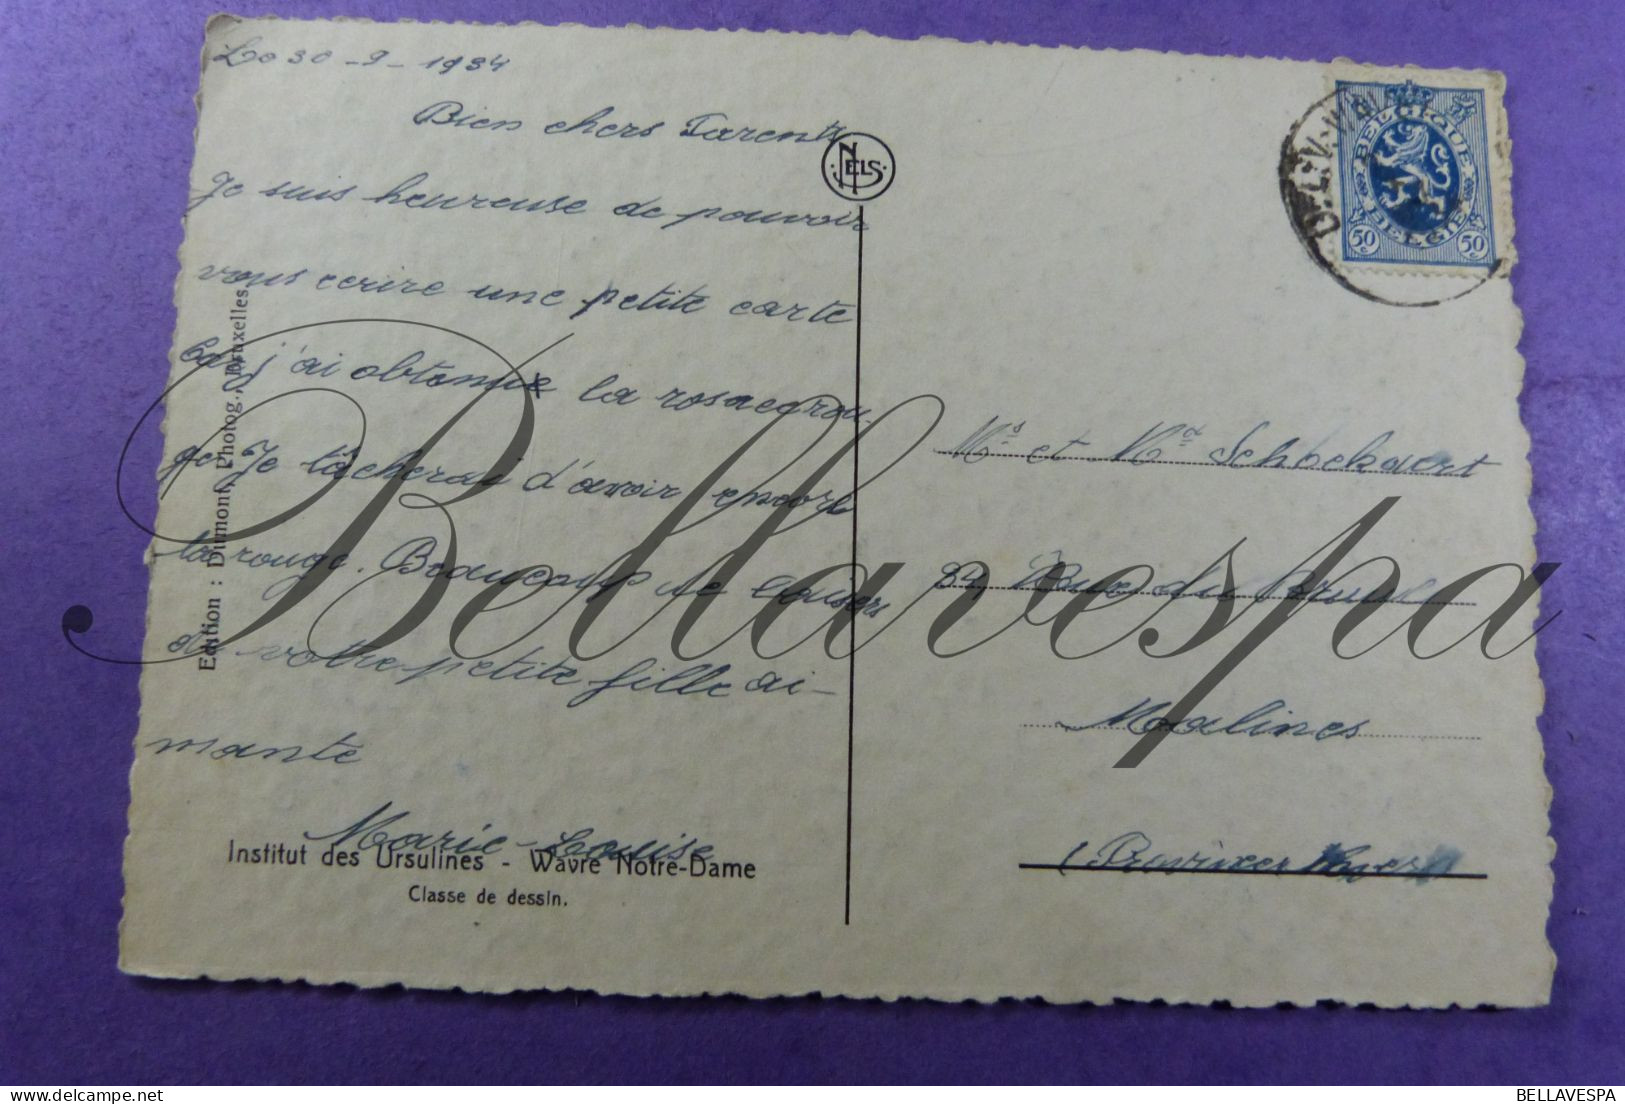 Le 30 - 9 - 1934
Bien chers Parents
Je suis heureuse de pouvoir
vous ecrire une petite carte
Car j'ai obtenue la rosacerou
ge. Je tâcherai d'avoir encore
la rouge. Beaucoup de baisers
de votre petite fille ai-
mante
Marie-Louise
Institut des Ursulines - Wavre Notre-Dame
Classe de dessin.
Edition : Dumont, Photog., Bruxelles
NELS
BELGIQUE
BELGIE
50 c
50 c
Mr et Md Schockaert
Rue du Bruul
Malines
(Province Anvers
Bellavespa
BELLAVESPA